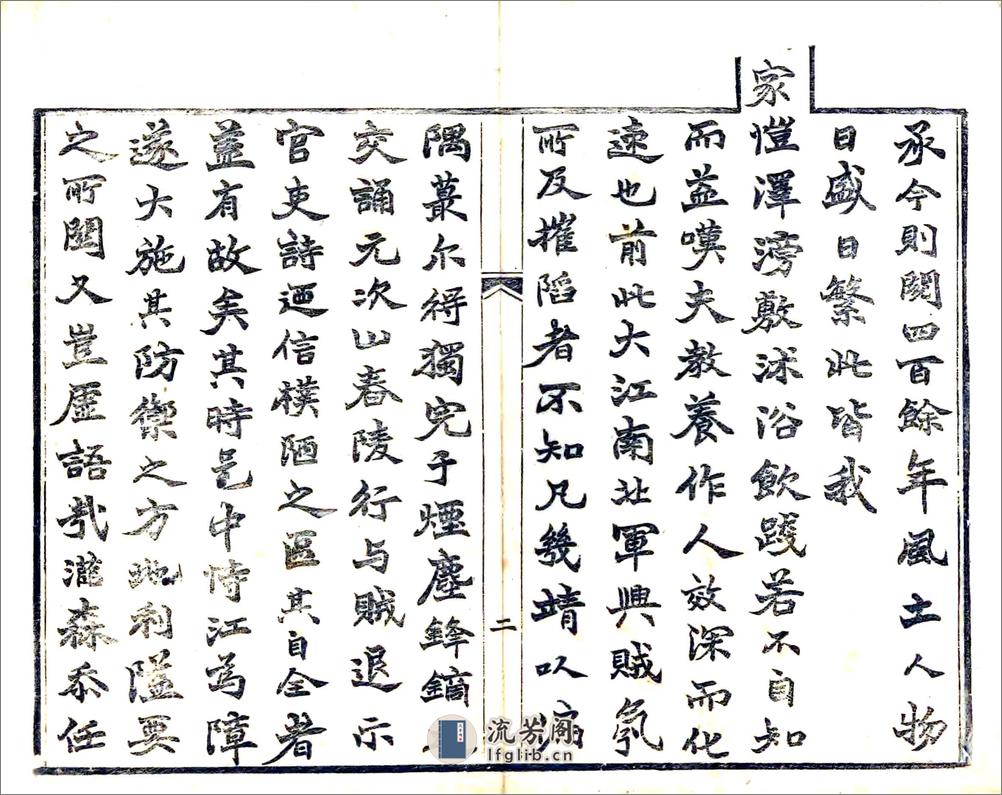 承今則闕四百餘年風土人物
日盛日繁此皆我
家愷澤滂敷沭浴飲踐若不自知
而益嘆夫教養作人效深而化
速也前此大江南北軍興賊氛
所及摧陷者不知凡幾靖以
二
隅蕞尔得獨完于煙塵鋒鏑
交誦元次山舂陵行与賊退示
官吏詩迺信樸陋之區其自全者
蓋有故矣其時邑中恃江為障
遂大施其防禦之方地利隘要
之所關又豈虛語哉瀧森忝任
流芳阁
lfglib.cn